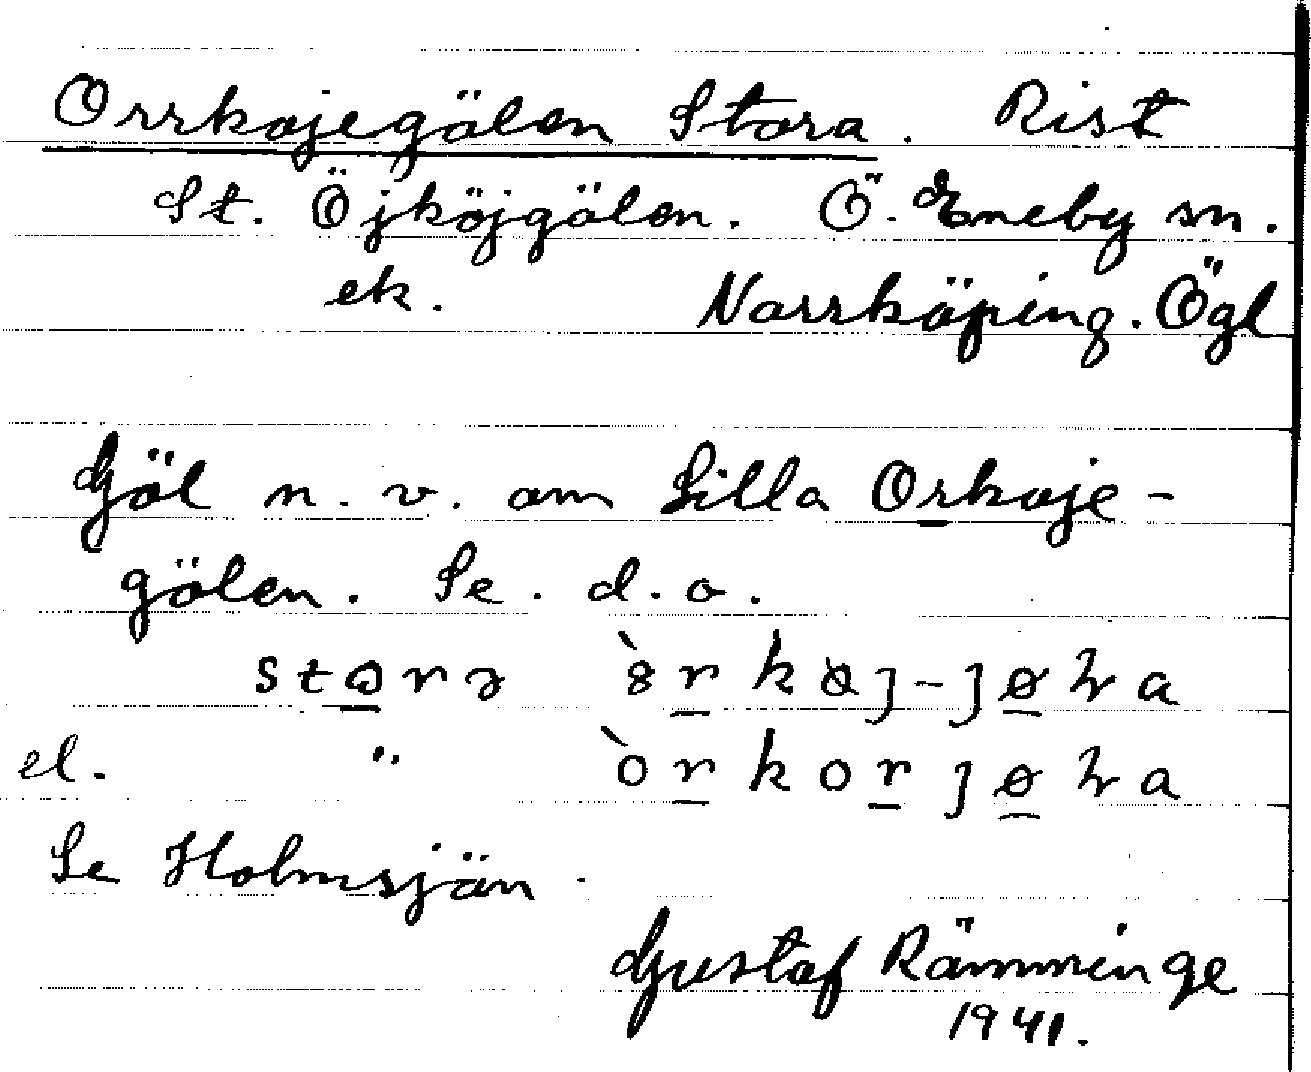 Orrkojegölen Stora. Rist
St. Öjköjgölen. Ö. Eneby sn.
ek. Norrköping. Ögl
Göl n. v. om Lilla Orkoje-
gölen. Se. d. o.
storə òrkoj-jøɫa
el. " òrkorjøɫa
Se Holmsjön.
Gustaf Rämminge
1941.